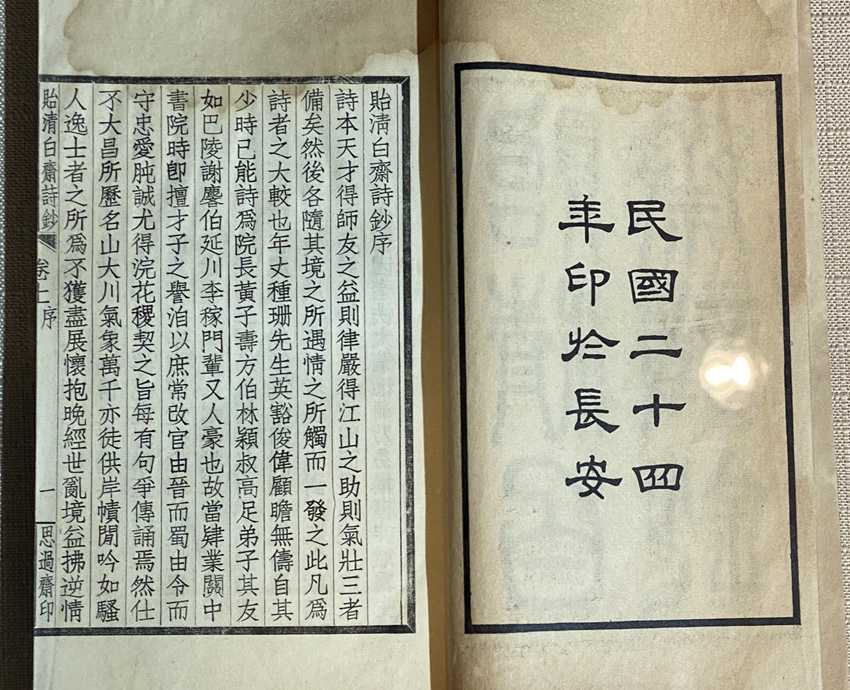 民國二十四
年印於長安
貽清白齋詩鈔序
詩本天才得師友之益則律嚴得江山之助則氣壯三者
備矣然後各隨其境之所遇情之所觸而一發之此凡爲
詩者之大較也年丈種珊先生英豁俊偉顧瞻無儔自其
少時已能詩爲院長黃子壽方伯林穎叔高足弟子其友
如巴陵謝麐伯延川李稼門輩又人豪也故當肄業關中
書院時卽擅才子之譽洎以庶常改官由晉而蜀由令而
守忠愛肫誠尤得浣花稷契之旨每有句爭傳誦焉然仕
不大昌所歷名山大川氣象萬千亦徒供岸幘閒吟如騷
人逸士者之所爲不獲盡展懷抱晚經世亂境益拂逆情
貽清白齋詩鈔
卷上
序
一
思過齋印